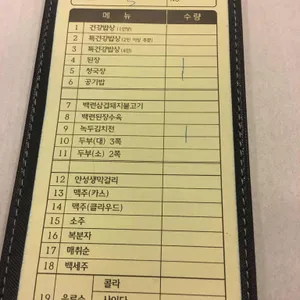 메 뉴 수 량
1 건강밥상(1인분)
2 특건강밥상(2인 이상 주문)
3 특건강밥상(4인)
4 된장
5 청국장
6 공기밥
7 백련삼겹돼지불고기
8 백련된장수육
9 녹두김치전
10 두부(대) 3쪽
11 두부(소) 2쪽
12 안성생막걸리
13 맥주(카스)
14 맥주(클라우드)
15 소주
16 복분자
17 매취순
18 백세주
19 음료수
콜라
사이다